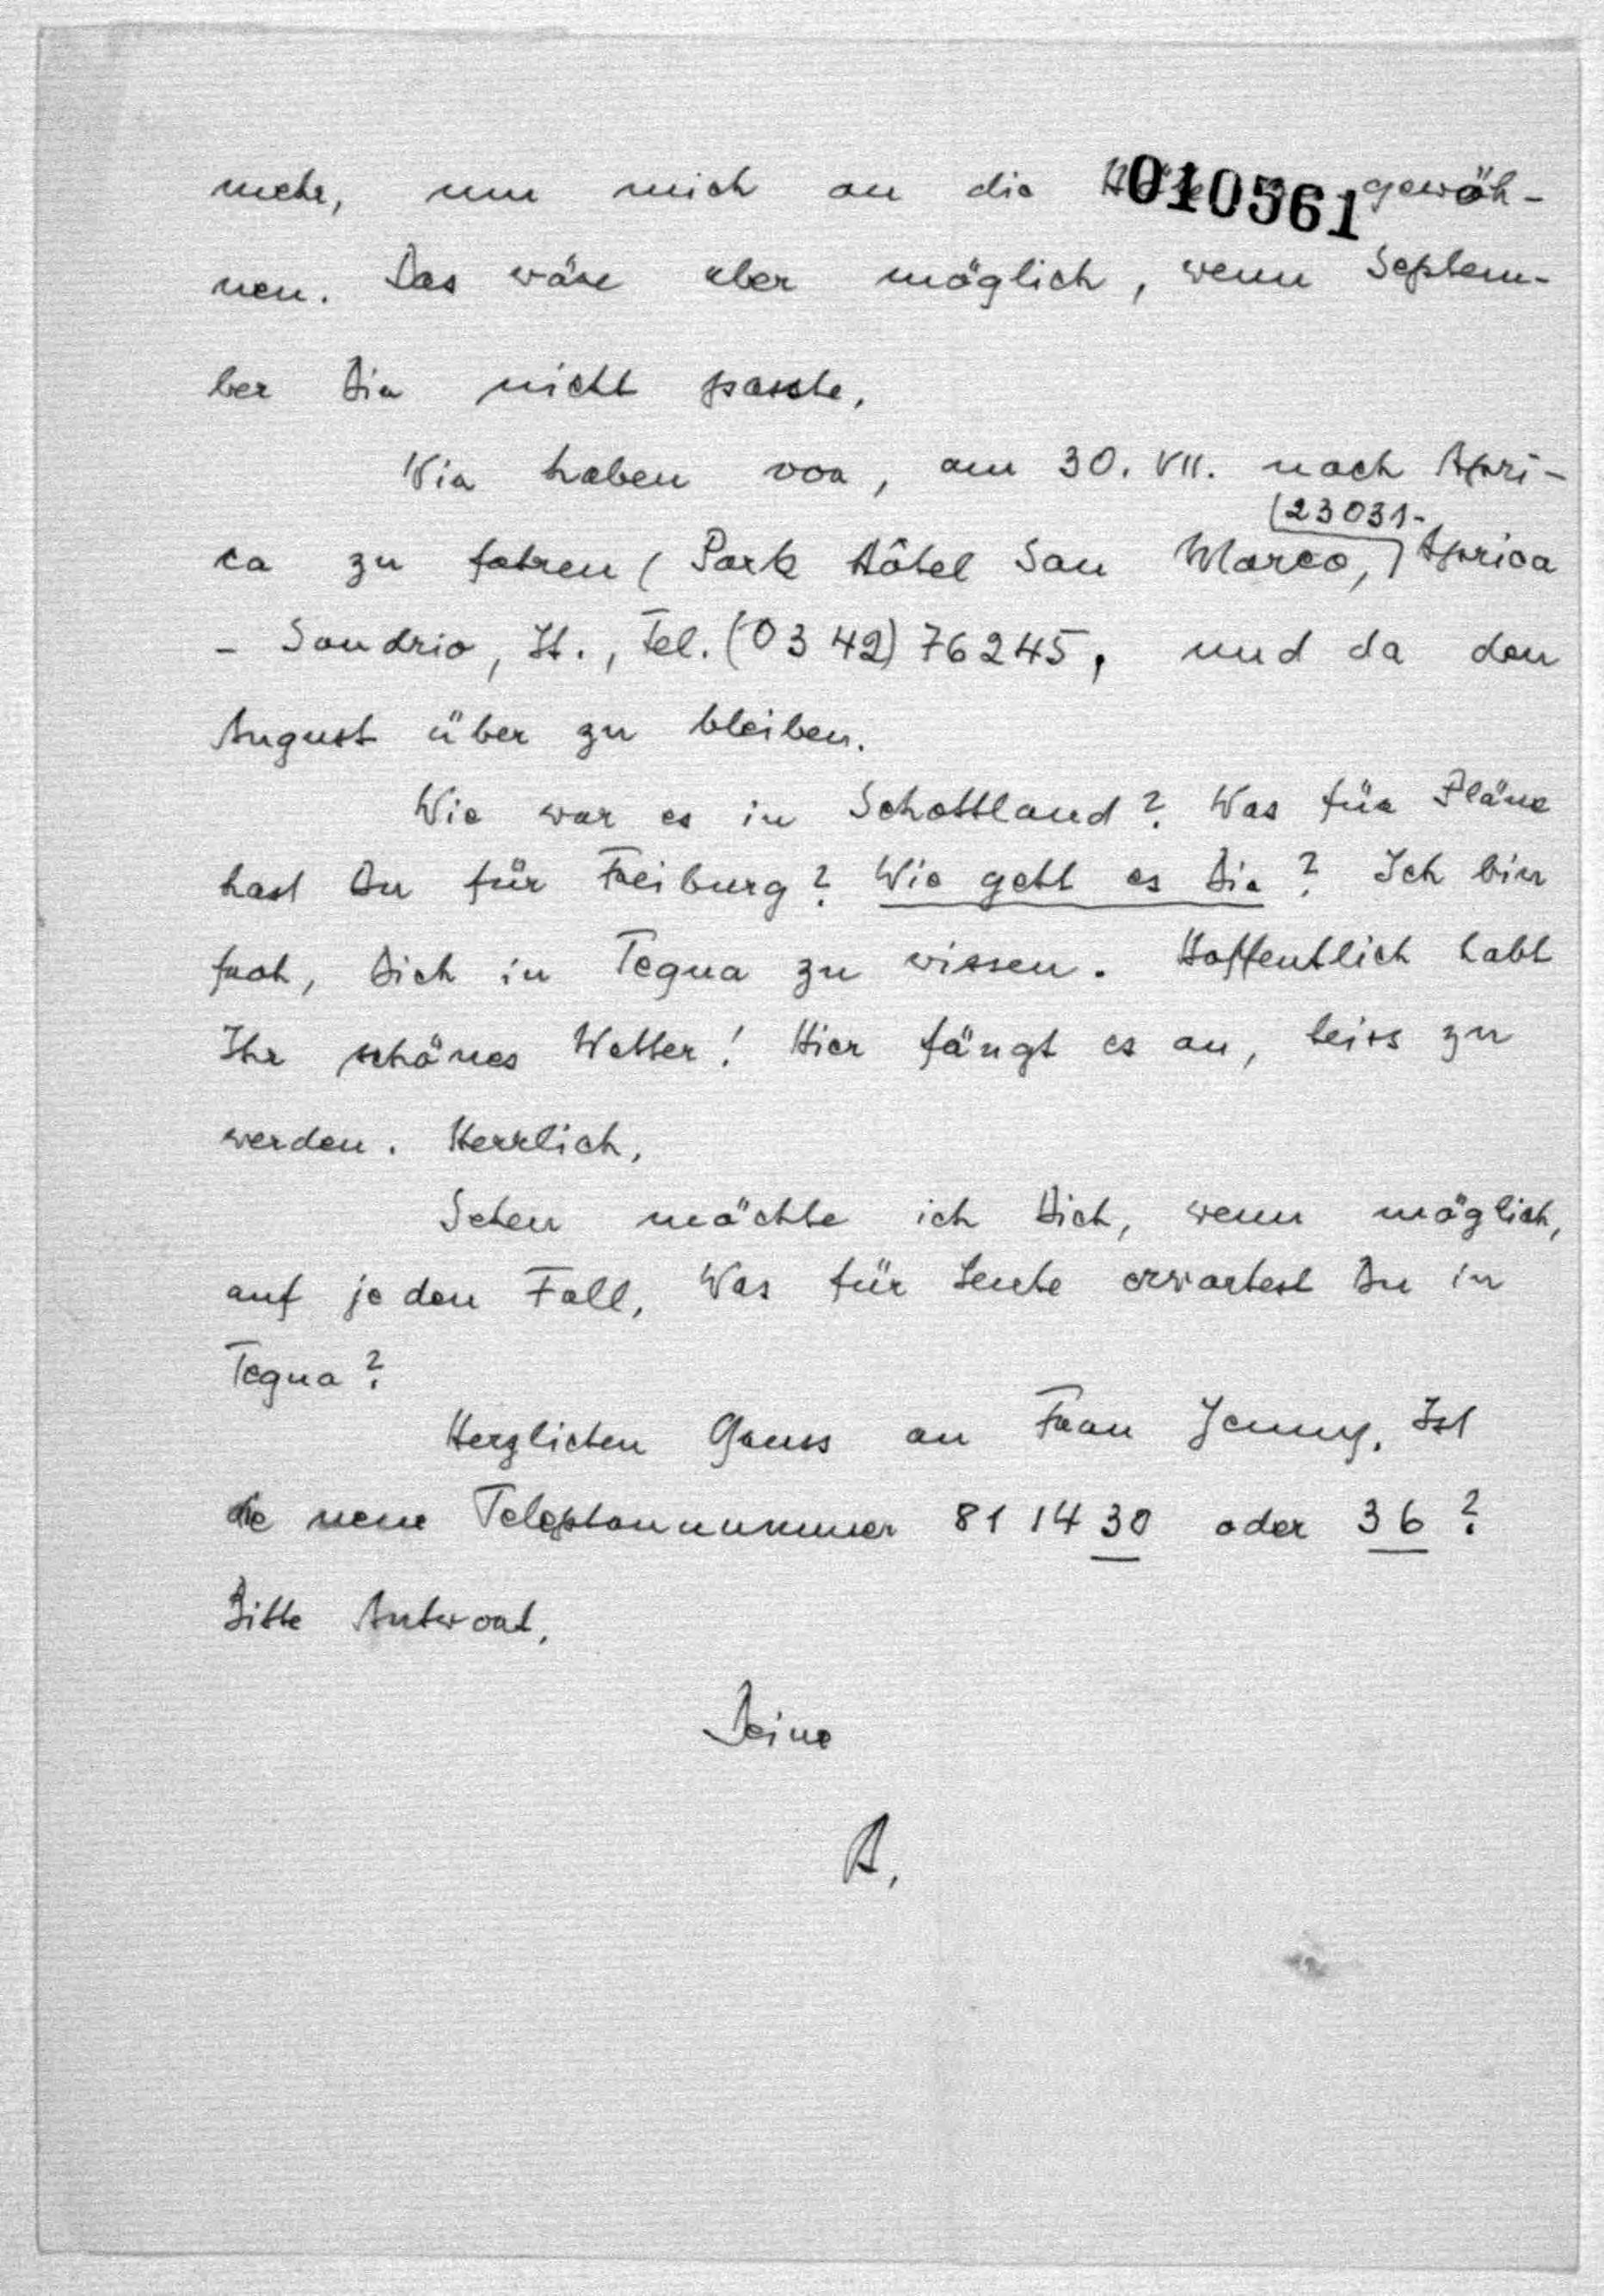 010561
mehr, um mich an die Höhe zu gewöh-
nen. Das wäre aber möglich, wenn Septem-
ber Dir nicht passte.
Wir haben vor, am 30. VII. nach Apri-
23031-
ca zu fahren (Park Hôtel San Marco, Aprica
- Sondrio, It., Tel. (0342) 76245, und da den
August über zu bleiben.
Wie war es in Schottland? Was für Pläne
hast Du für Freiburg? Wie geht es Dir? Ich bin
froh, Dich in Tegna zu wissen. Hoffentlich habt
Ihr schönes Wetter! Hier fängt es an, heiss zu
werden. Herrlich.
Sehen möchte ich Dich, wenn möglich,
auf jeden Fall. Was für Leute erwartest Du in
Tegna?
Herzlichen Gruss an Frau Jenny. Ist
die neue Telephonnummer 81 14 30 oder 36?
Bitte Antwort.
Deine
A.